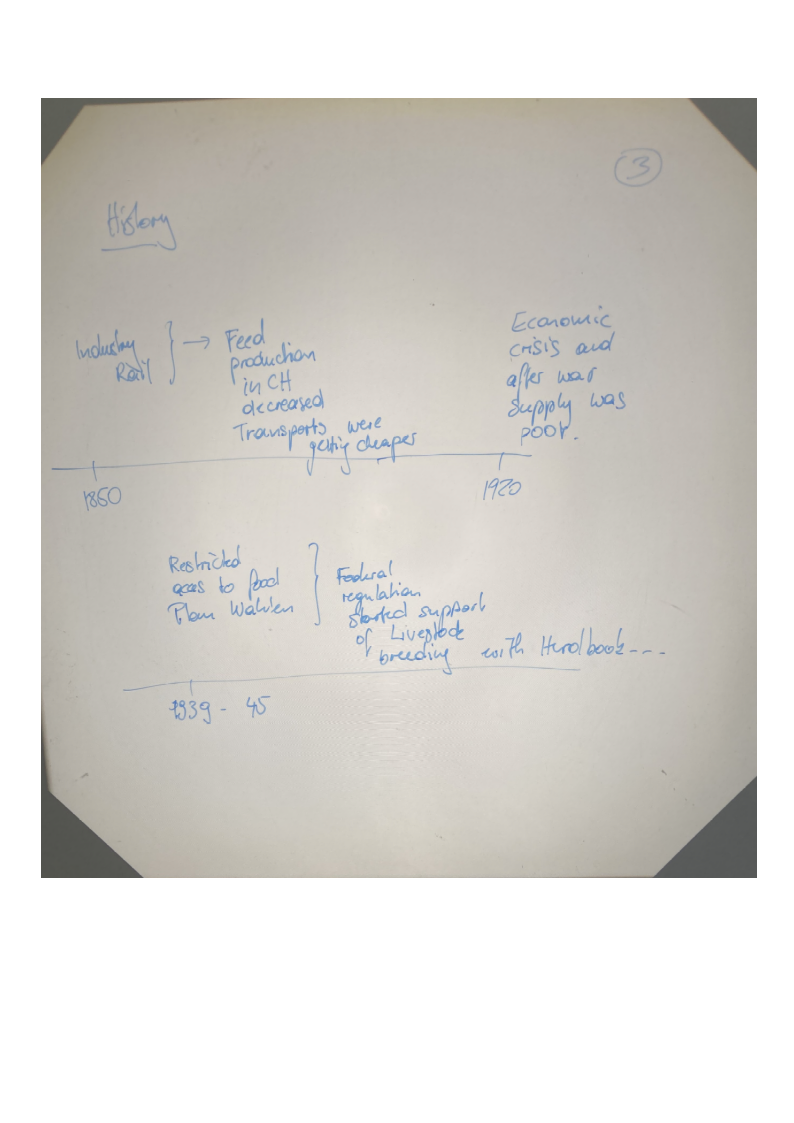 3
History
Industry
Rail
} → Feed
production
in CH
decreased
Transports were
getting cheaper
Economic
crisis and
after war
supply was
poor.
1860
1920
Restricted
acces to food
Plan Wahlen
} Federal
regulation
started support
of Livestock
breeding with Herdbook ---
1939 - 45